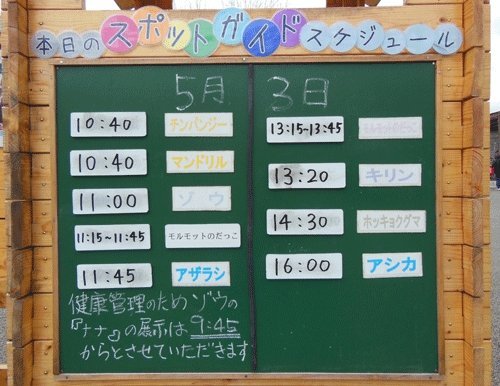 本日のスポットガイドスケジュール
5月 3日
10:40 チンパンジー
10:40 マンドリル
11:00 ゾウ
11:15~11:45 モルモットのだっこ
11:45 アザラシ
健康管理のためゾウの
『ナナ』の展示は9:45
からとさせていただきます
13:15~13:45 モルモットのだっこ
13:20 キリン
14:30 ホッキョクグマ
16:00 アシカ